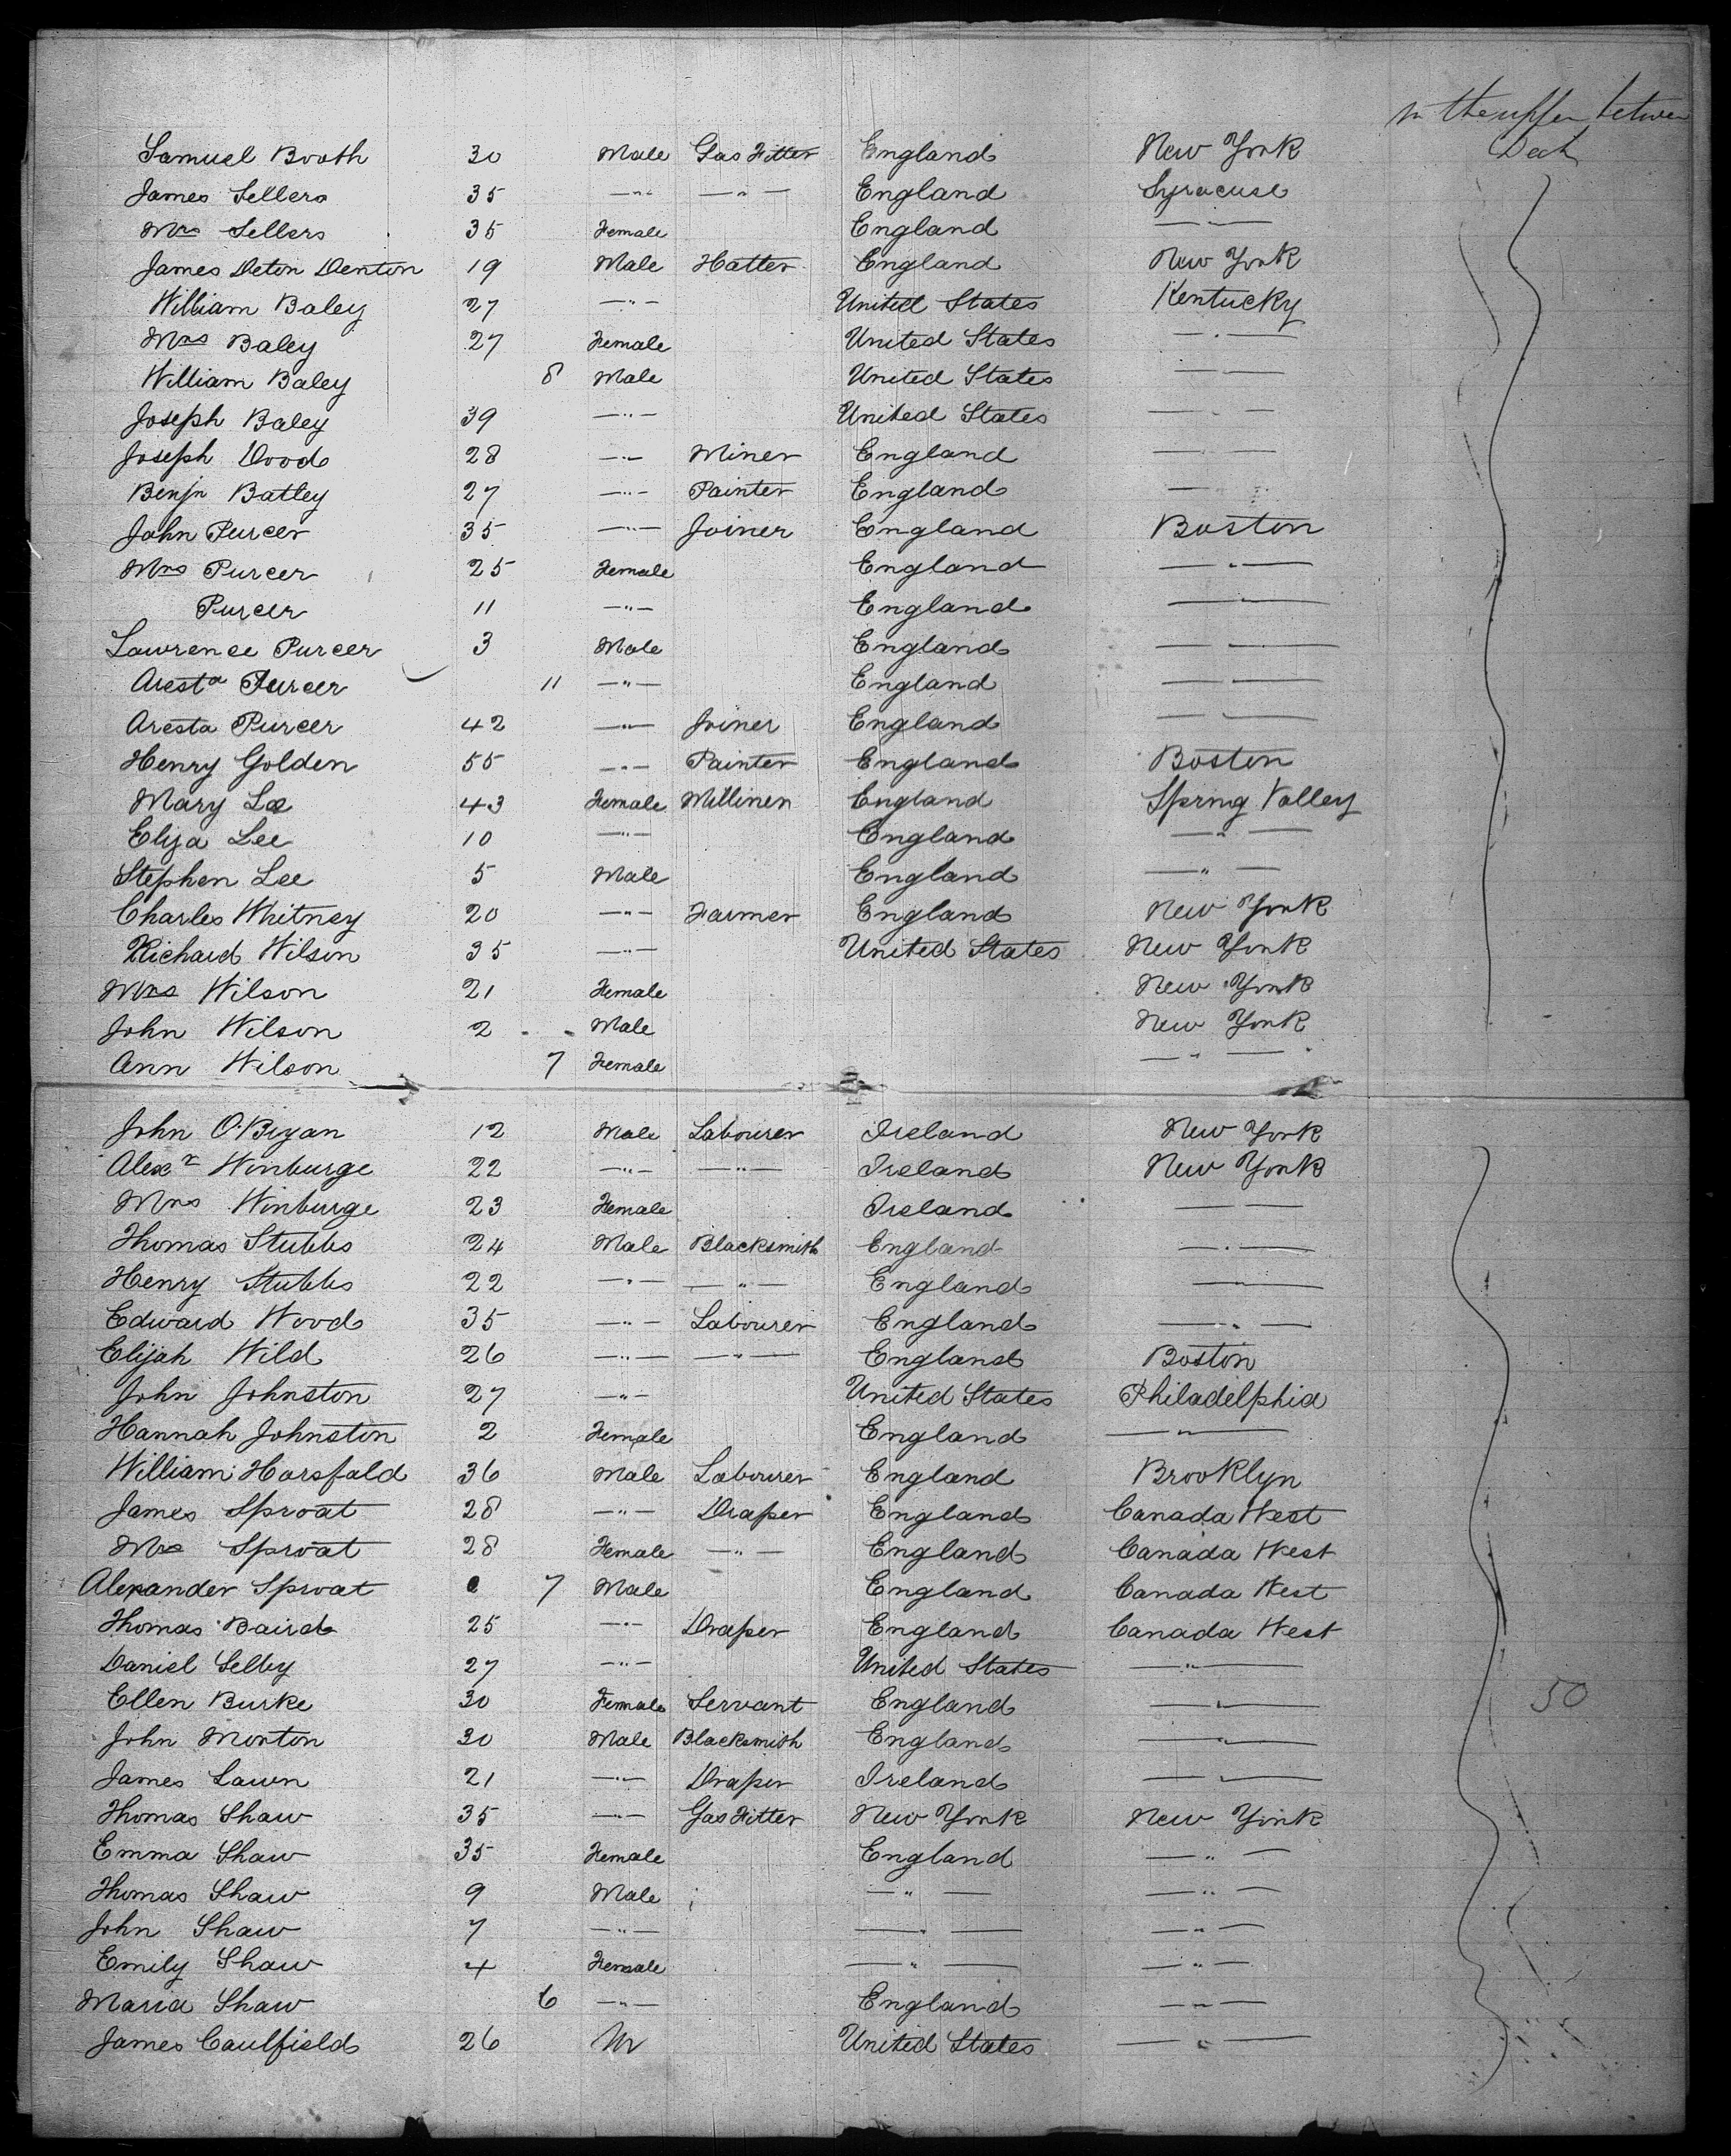 in the upper between
Samuel Booth 30 Male Gas Fitter England New York Deck
James Sellers 35 —"— —"— England Syracuse
Mrs Sellers 35 Female England —"—
James Deton Denton 19 Male Hatter England New York
William Baley 27 —"— United States Kentucky
Mrs Baley 27 Female United States —"—
William Baley 8 Male United States —"—
Joseph Baley 39 —"— United States —"—
Joseph Dood 28 —"— Miner England —"—
Benjn Batley 27 —"— Painter England —"—
John Purcer 35 —"— Joiner England Boston
Mrs Purcer 25 Female England —"—
Purcer 11 —"— England —"—
Lawrence Purcer 3 Male England —"—
Aresta Purcer 11 —"— England —"—
Aresta Purcer 42 —"— Joiner England —"—
Henry Golden 55 —"— Painter England Boston
Mary Lee 43 Female Milliner England Spring Valley
Eliza Lee 10 —"— England —"—
Stephen Lee 5 Male England —"—
Charles Whitney 20 —"— Farmer England New York
Richard Wilson 35 —"— United States New York
Mrs Wilson 21 Female New York
John Wilson 2 Male New York
Ann Wilson 7 Female —"—
John O'Bryan 12 Male Labourer Ireland New York
Alexr Winburge 22 —"— —"— Ireland New York
Mrs Winburge 23 Female Ireland —"—
Thomas Stubbs 24 Male Blacksmith England —"—
Henry Stubbs 22 —"— —"— England —"—
Edward Wood 35 —"— Labourer England —"—
Elijah Wild 26 —"— —"— England Boston
John Johnston 27 —"— United States Philadelphia
Hannah Johnston 2 Female England —"—
William Horsfald 36 Male Labourer England Brooklyn
James Sproat 28 —"— Draper England Canada West
Mrs Sproat 28 Female —"— England Canada West
Alexander Sproat 7 Male England Canada West
Thomas Baird 25 —"— Draper England Canada West
Daniel Selby 27 —"— United States —"—
Ellen Burke 30 Female Servant England —"— 50
John Morton 30 Male Blacksmith England —"—
James Lawn 21 —"— Draper Ireland —"—
Thomas Shaw 35 —"— Gas Fitter New York New York
Emma Shaw 35 Female England —"—
Thomas Shaw 9 Male —"— —"—
John Shaw 7 —"— —"— —"—
Emily Shaw 4 Female —"— —"—
Maria Shaw 6 —"— England —"—
James Caulfield 26 M United States —"—